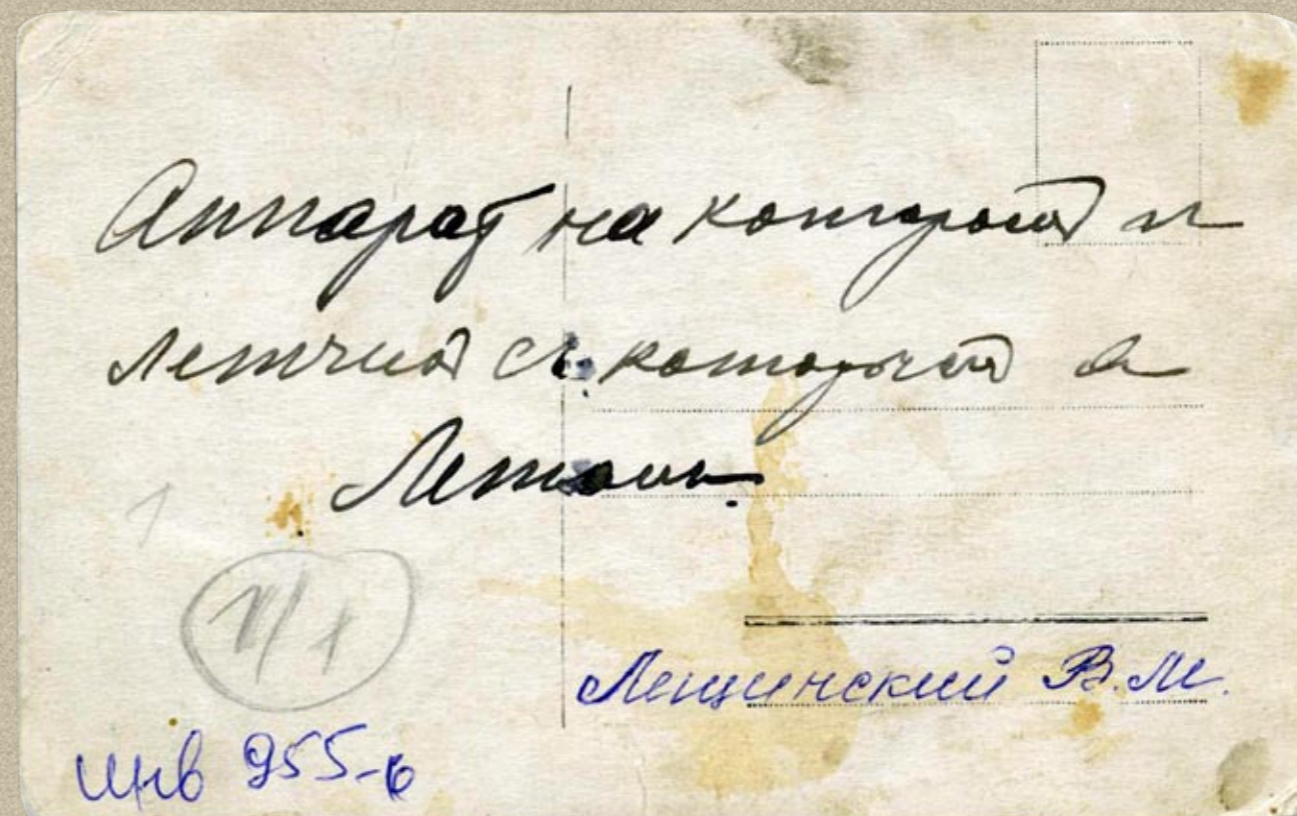 Аппарат на котором и
летчик съ которым я
Леталъ.
Лещинский В. М.
инв 955-6